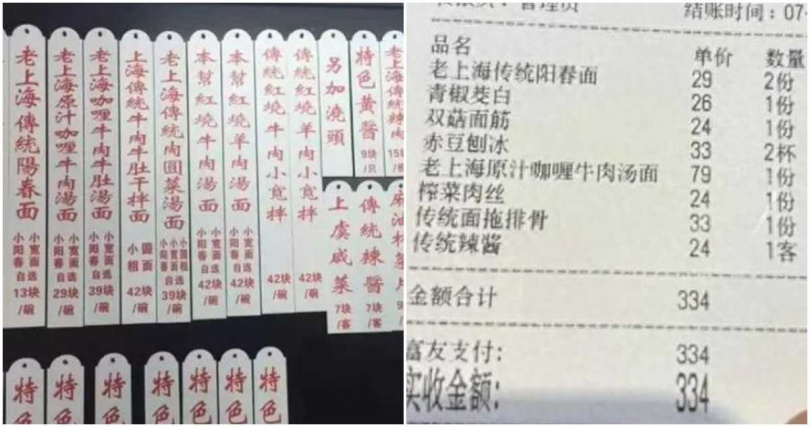 老上海傳統陽春面
小阳春
小宽面
自选
13块/碗
老上海原汁咖喱牛肉湯面
小阳春
小宽面
自选
29块/碗
老上海咖喱牛肉牛肚湯面
小阳春
小宽面
自选
39块/碗
上海傳統牛肉牛肚干拌面
小粗
圆面
42块/碗
老上海傳統肉圓菜湯面
39块/碗
本幫紅燒牛肉湯面
小阳春
小宽面
自选
42块/碗
本幫紅燒羊肉湯面
小阳春
小宽面
自选
42块/碗
傳統紅燒牛肉小寬拌
42块/碗
傳統紅燒羊肉小寬拌
42块/碗
另加澆頭
特色黃醬
9块/只
老上海傳統辣肉
15块
上虞咸菜
7块/客
傳統辣醬
7块/客
特色
特色
特色
特色
特色
特色
特色
管理员
结账时间：07-
品名 单价 数量
老上海传统阳春面 29 2份
青椒茭白 26 1份
双菇面筋 24 1份
赤豆刨冰 33 2杯
老上海原汁咖喱牛肉汤面 79 1份
榨菜肉丝 24 1份
传统面拖排骨 33 1份
传统辣酱 24 1客
金额合计 334
富友支付: 334
实收金额: 334